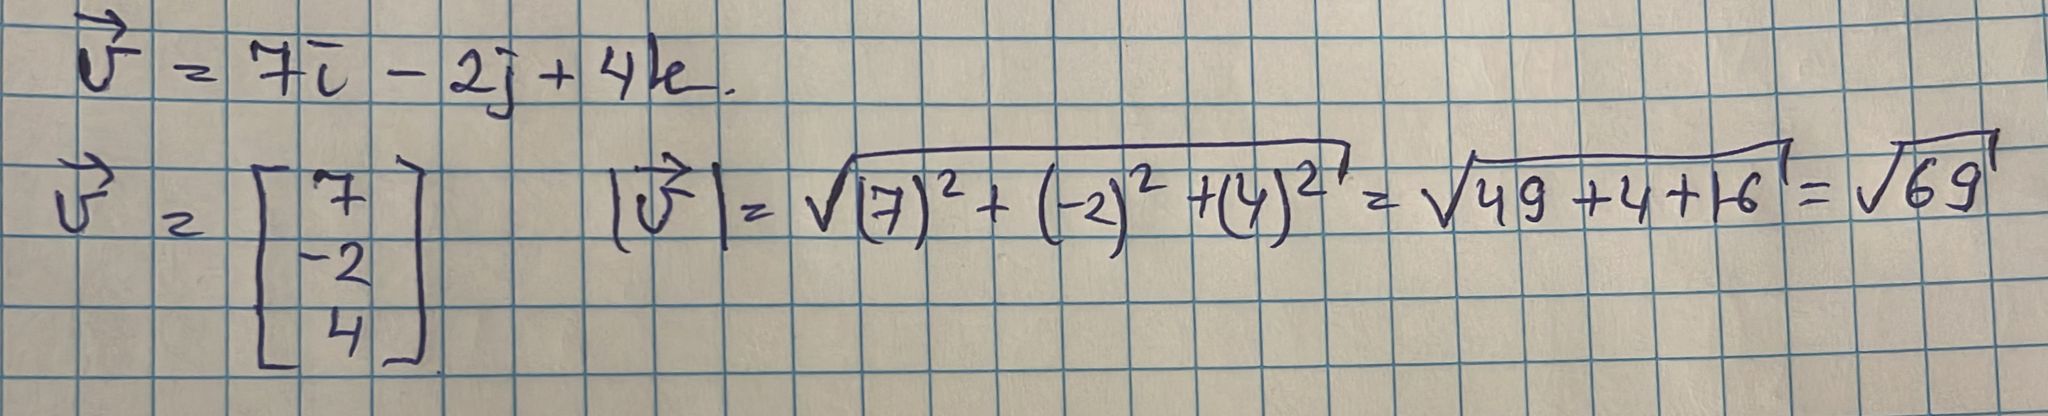 v⃗ = 7i − 2j + 4k.
v⃗ = [7 −2 4] |v⃗| = √((7)² + (−2)² + (4)²) = √(49 + 4 + 16) = √69